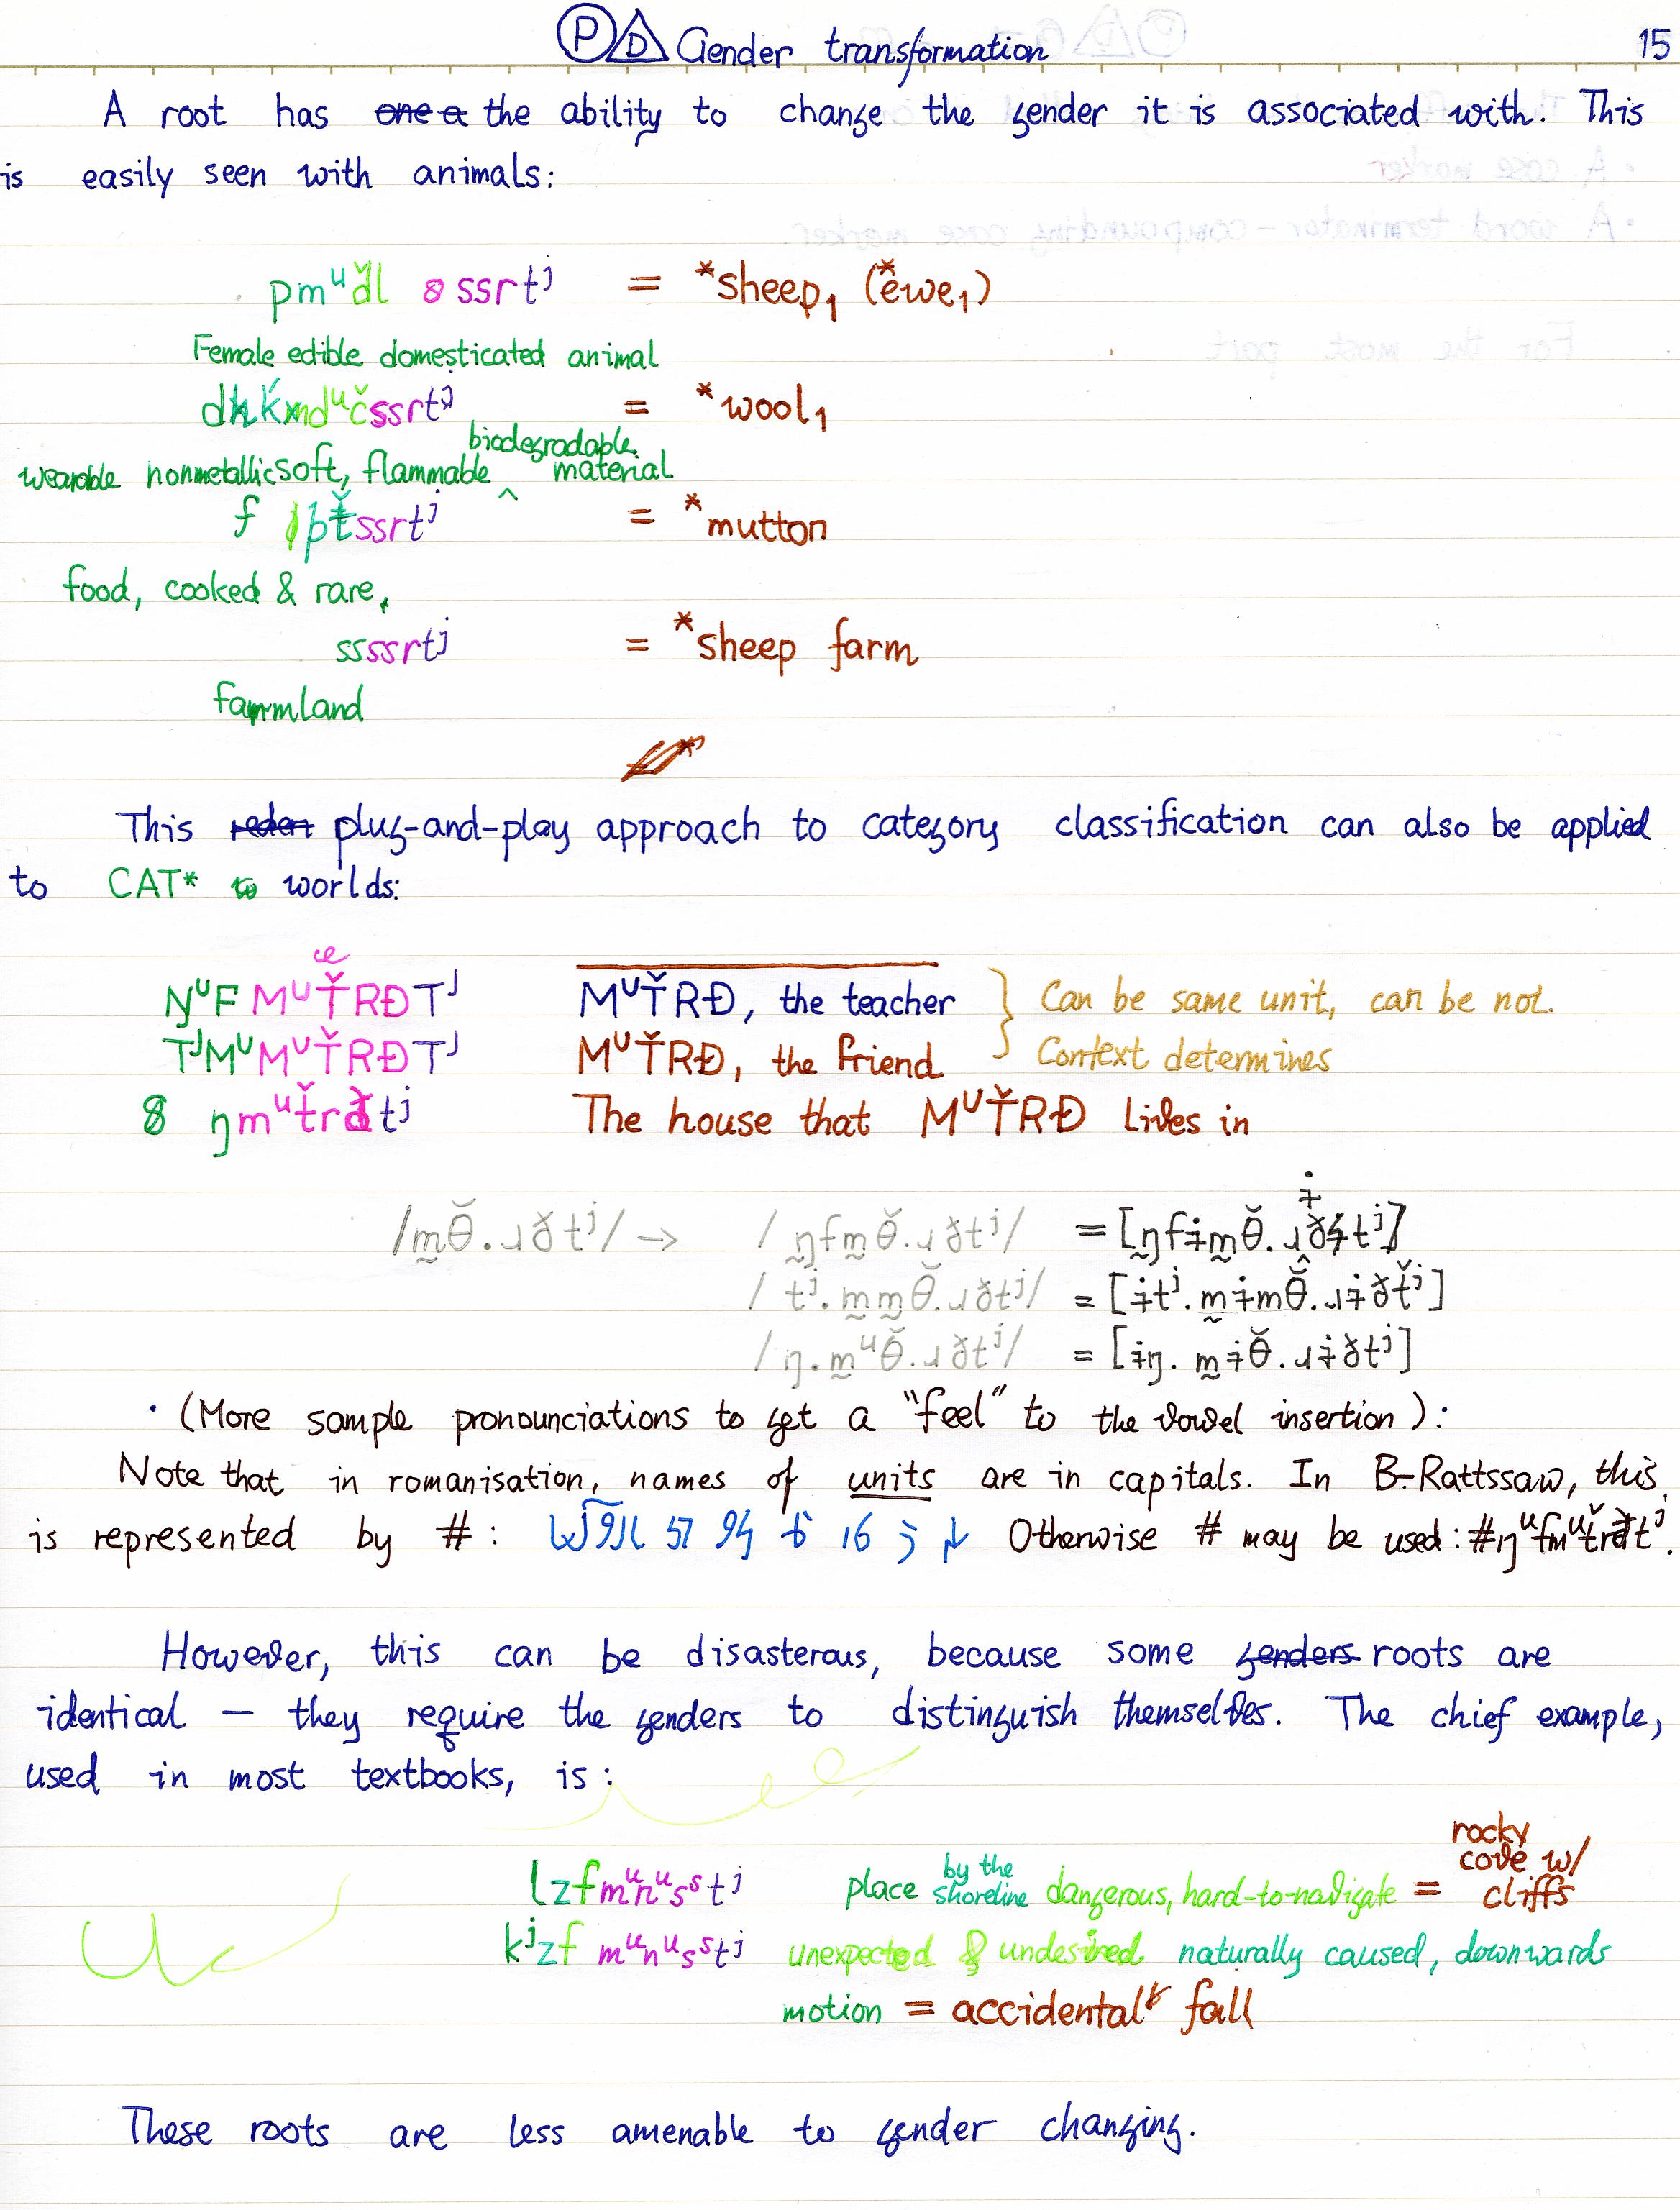 P D Gender transformation 15
A root has one a the ability to change the gender it is associated with. This
is easily seen with animals:
pmᵘďl 8 ssrtʲ = *sheep₁ (*ewe₁)
Female edible domesticated animal
= *wool₁
biodegradable
wearable nonmetallic soft, flammable ^ material
= *mutton
food, cooked & rare,
ssssrtʲ = *sheep farm
farmland
This plug-and-play approach to category classification can also be applied
to CAT* worlds:
œ
NᵁF MᵁŤRĐTᴶ MᵁŤRĐ, the teacher } Can be same unit, can be not.
TᴶMᵁMᵁŤRĐTᴶ MᵁŤRĐ, the friend Context determines
8 ŋmᵘťrđtʲ The house that MᵁŤRĐ Lives in
(More sample pronounciations to get a "feel" to the vowel insertion):
Note that in romanisation, names of units are in capitals. In B-Rattssaw, this
is represented by #: Otherwise # may be used: #ŋᵘfmᵘťrđtʲ.
However, this can be disasterous, because some genders roots are
identical – they require the genders to distinguish themselves. The chief example,
used in most textbooks, is:
rocky
by the cove w/
lzfmᵘnᵘsˢtʲ place shoreline dangerous, hard-to-navigate = cliffs
kʲzf mᵘnᵘsˢtʲ unexpected & undesired naturally caused, downwards
motion = accidental fall
These roots are less amenable to gender changing.